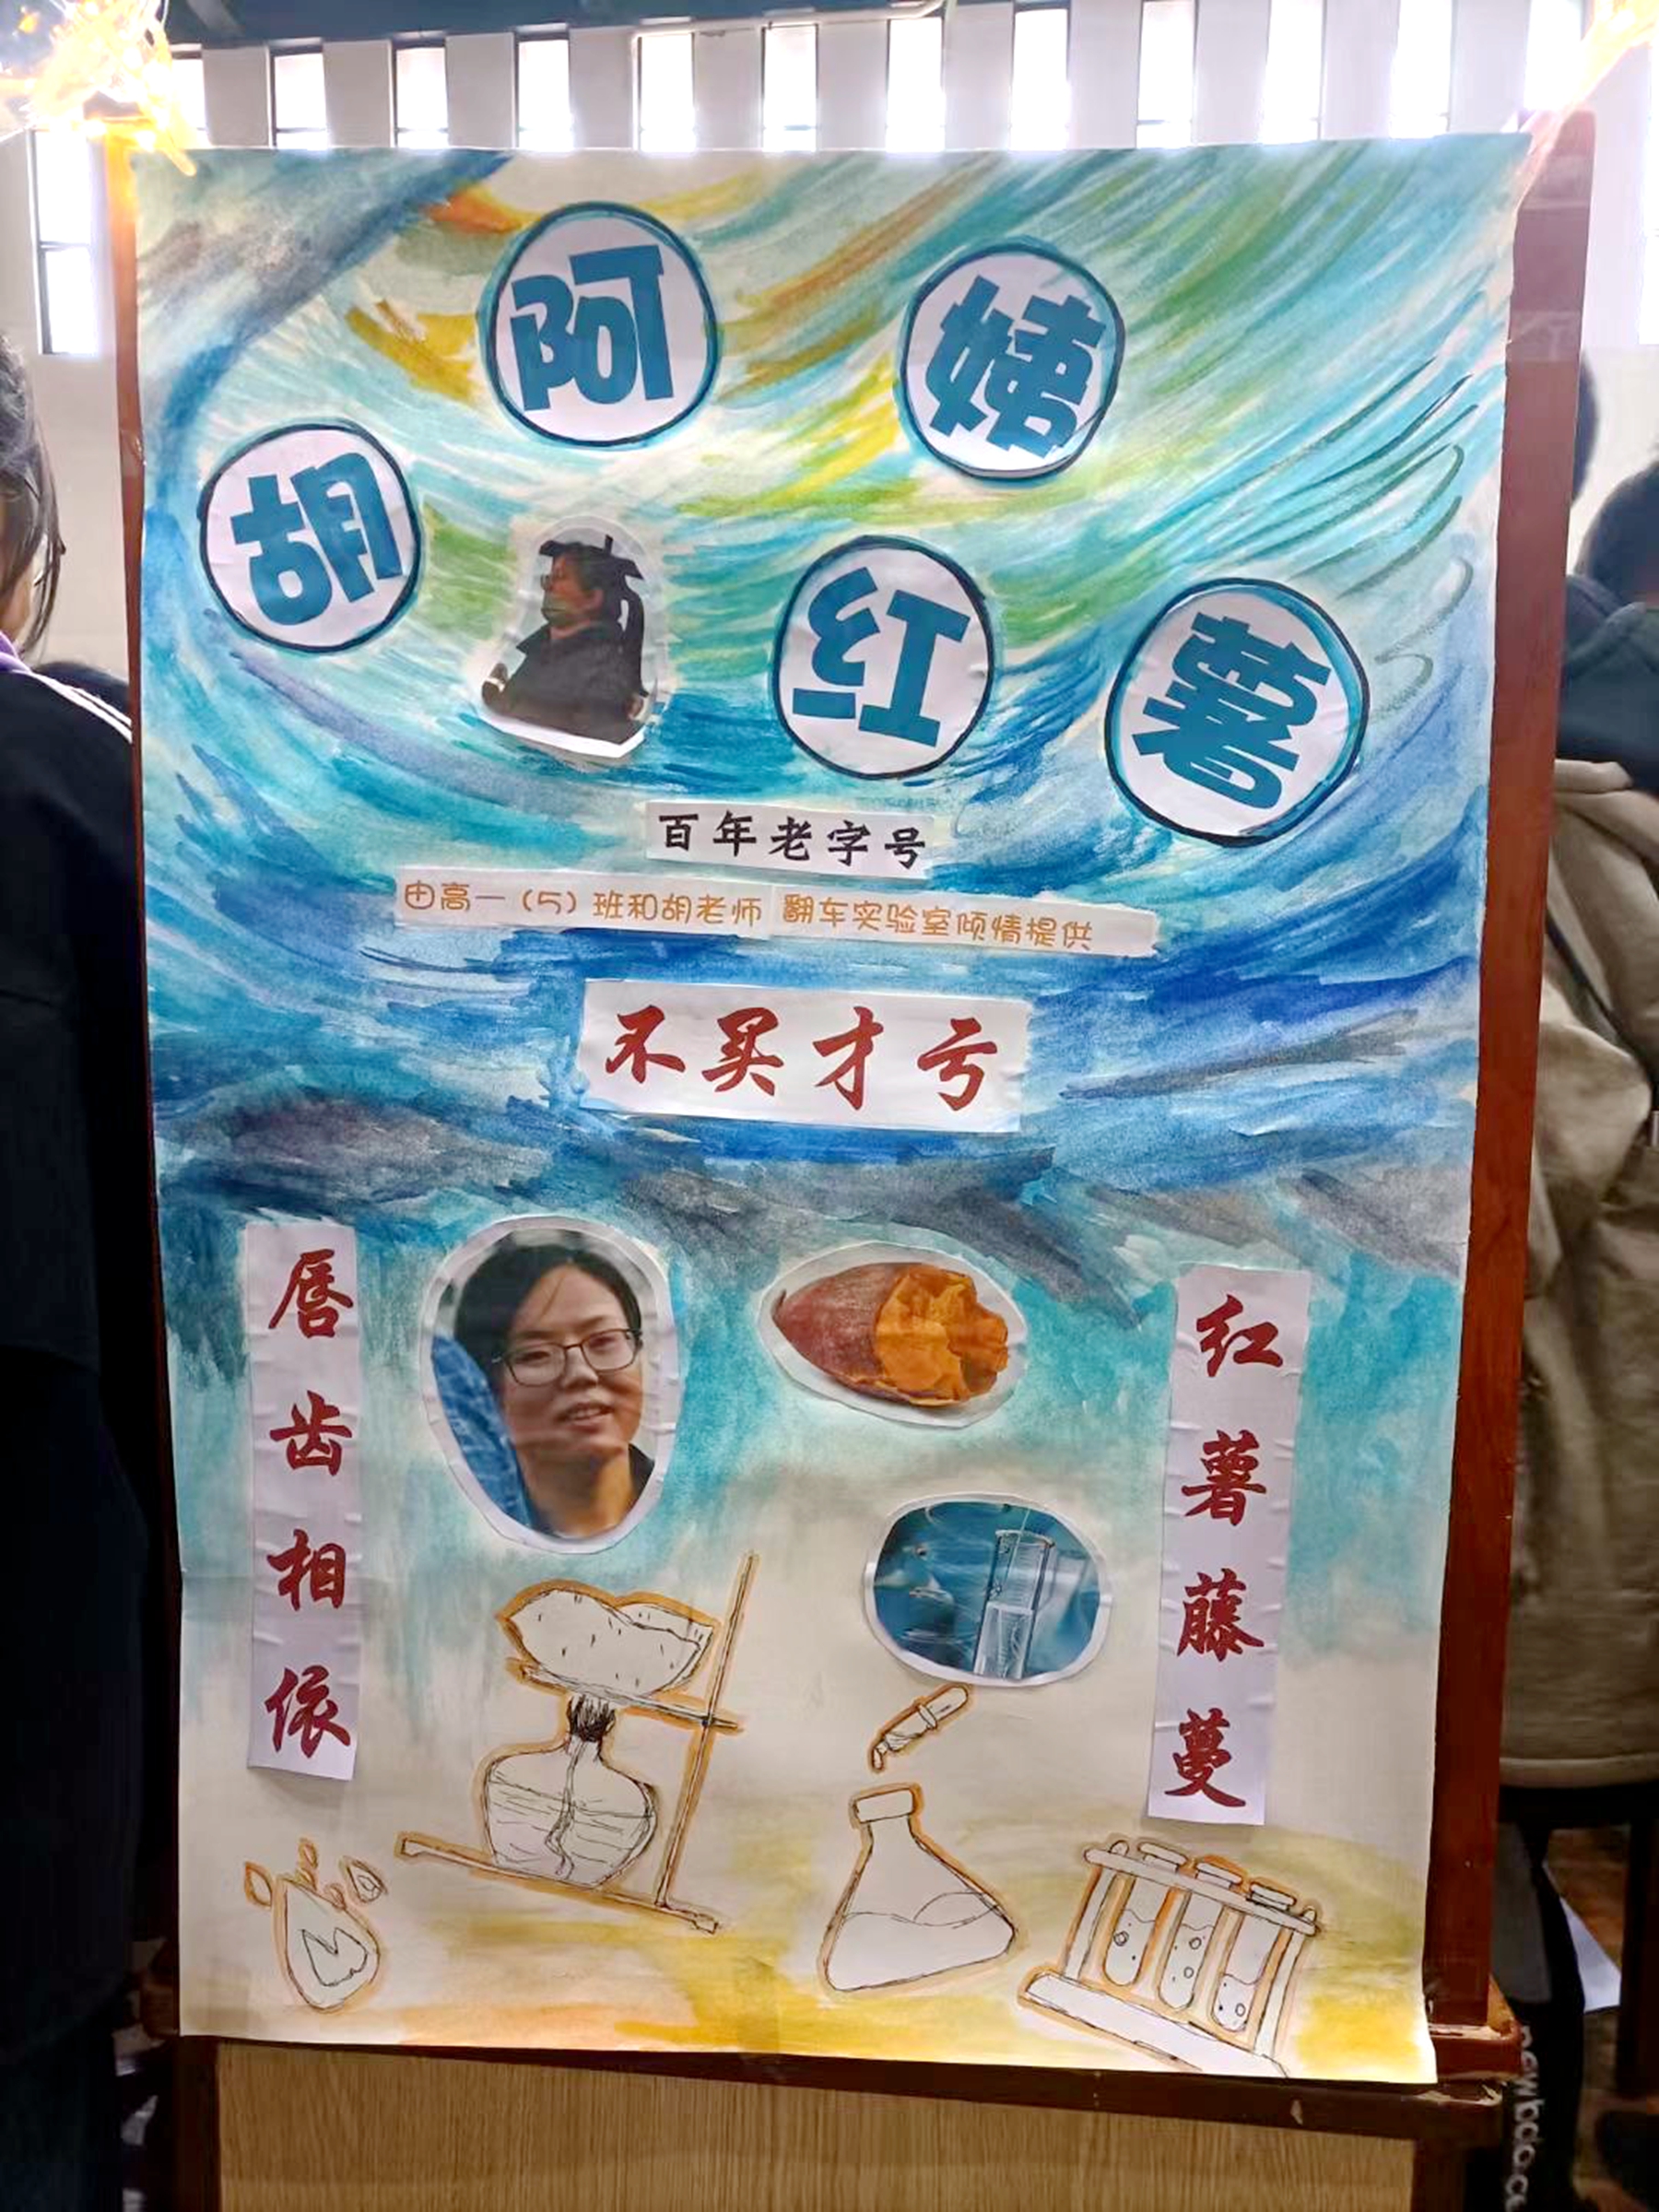 胡阿姨
红薯
百年老字号
由高一（5）班和胡老师 翻车实验室倾情提供
不买才亏
唇齿相依
红薯藤蔓